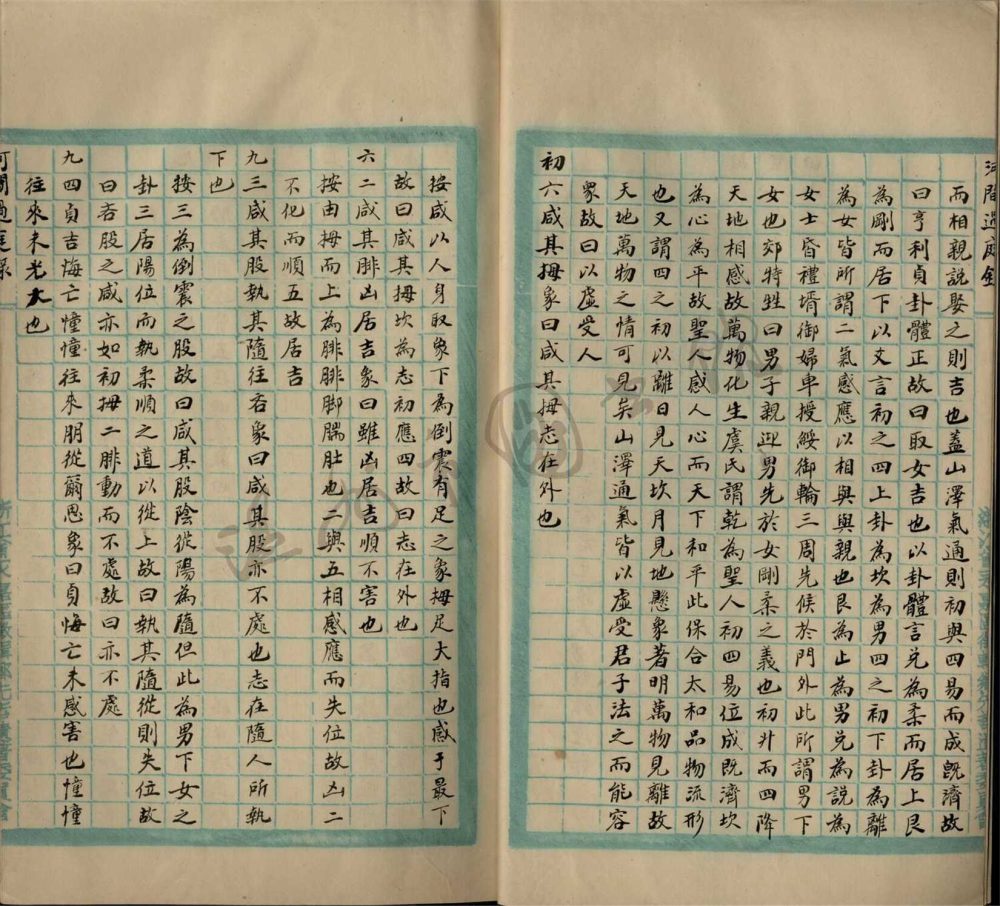 河間過庭錄
而相親說娶之則吉也蓋山澤氣通則初與四易而成既濟故
曰亨利貞卦體正故曰取女吉也以卦體言兌為柔而居上艮
為剛而居下以爻言初之四上卦為坎為男四之初下卦為離
為女皆所謂二氣感應以相與與親也艮為止為男兌為說為
女士昏禮壻御婦車授綏御輪三周先候於門外此所謂男下
女也郊特牲曰男子親迎男先於女剛柔之義也初升而四降
天地相感故萬物化生虞氏謂乾為聖人初四易位成既濟坎
為心為平故聖人感人心而天下和平此保合太和品物流形
也又謂四之初以離日見天坎月見地懸象著明萬物見離故
天地萬物之情可見矣山澤通氣皆以虛受君子法之而能容
象故曰以虛受人
初六咸其拇象曰咸其拇志在外也
按咸以人身取象下為倒震有足之象拇足大指也感于最下
故曰咸其拇坎為志初應四故曰志在外也
六二咸其腓凶居吉象曰雖凶居吉順不害也
按由拇而上為腓腓脚腨肚也二與五相感應而失位故凶二
不化而順五故居吉
九三咸其股執其隨往吝象曰咸其股亦不處也志在隨人所執
下也
按三為倒震之股故曰咸其股陰從陽為隨但此為男下女之
卦三居陽位而執柔順之道以從上故曰執其隨從則失位故
曰吝股之咸亦如初拇二腓動而不處故曰亦不處
九四貞吉悔亡憧憧往來朋從爾思象曰貞悔亡未感害也憧憧
往來未光大也
河間過庭錄